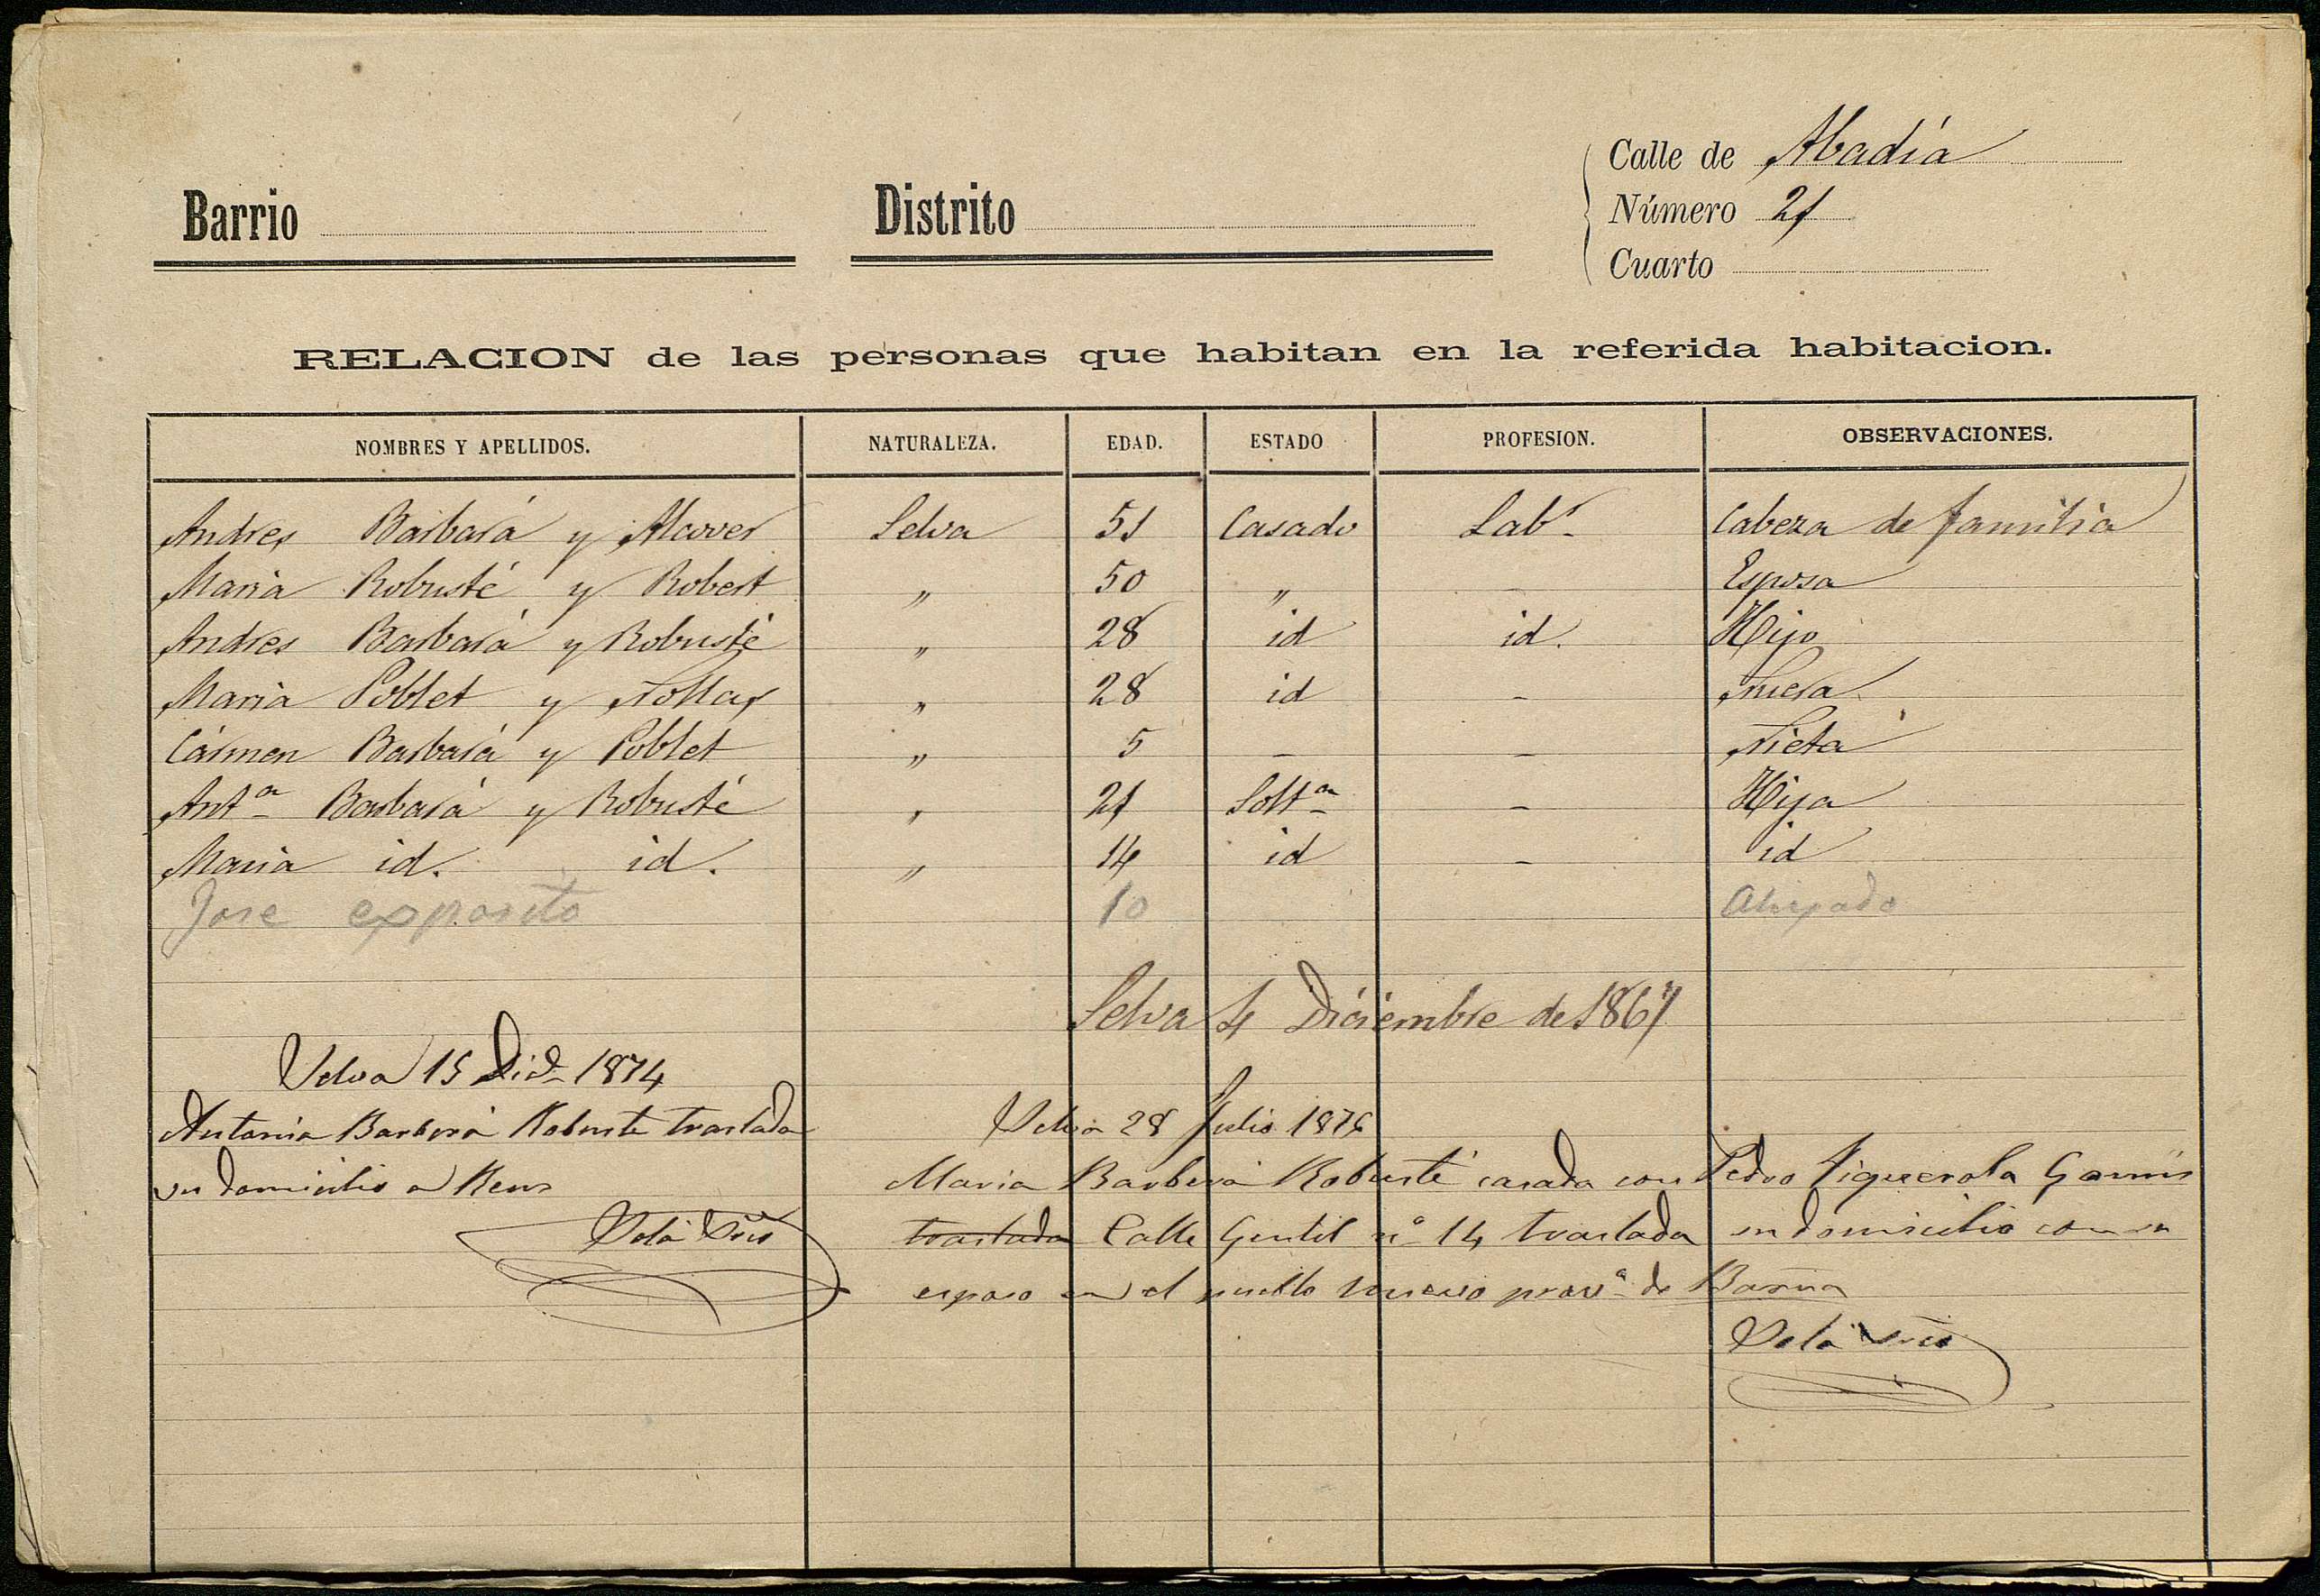 Calle de Abadía
Barrio Distrito Número 21
Cuarto
RELACION de las personas que habitan en la referida habitacion.
NOMBRES Y APELLIDOS. NATURALEZA. EDAD. ESTADO PROFESION. OBSERVACIONES.
Andres Barbará y Alcover Selva 51 Casado Labr. Cabeza de familia
Maria Robusté y Robert " 50 " - Esposa
Andres Barbará y Robusté " 28 id id. Hijo
Maria Poblet y " 28 id - Nuera
Cármen Barbará y Poblet " 5 - - Nieta
Anta Barbará y Robusté " 21 Solta - Hija
Maria id. id. " 14 id - id
Jose exposito 10 Ahijado
Selva 4 Diciembre de 1867
Selva 15 Dice 1874
Antonia Barberá Robusté traslada
su domicilio a Reus
Solá Srio
Selva 28 Julio 1876
Maria Barberá Robusté casada con Pedro Figuerola
traslada Calle Gentil nº 14 traslada su domicilio con su
esposo en el pueblo nuevo prova de Barna
Solá Srio